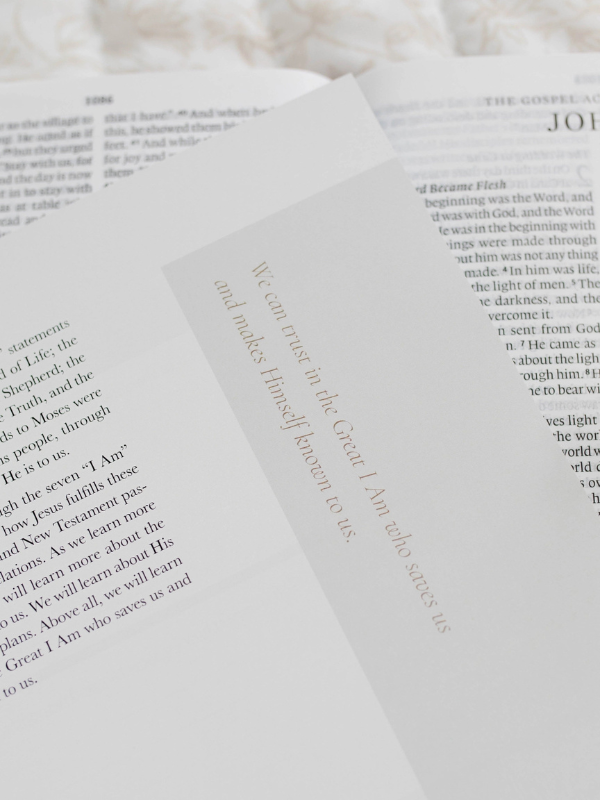 THE GOSPEL AC
JOH
rd Became Flesh
beginning was the Word, and
d was with God, and the Word
He was in the beginning with
ings were made through
out him was not any thing
made. 4 In him was life,
the light of men. 5 The
he darkness, and the
vercome it.
n sent from God
n. 7 He came as
about the ligh
rough him. 8 H
me to bear wi
ives light
the worl
world w
orld d
s ov
h
that I have?" 41 And
this, he showed them his
feet. 41 And while
for joy and
them
We can trust in the Great I Am who saves us
and makes Himself known to us.
statements
d of Life; the
Shepherd; the
e Truth, and the
ds to Moses were
is people, through
He is to us.
gh the seven “I Am”
how Jesus fulfills these
and New Testament pas-
lations. As we learn more
will learn more about the
o us. We will learn about His
plans. Above all, we will learn
Great I Am who saves us and
to us.